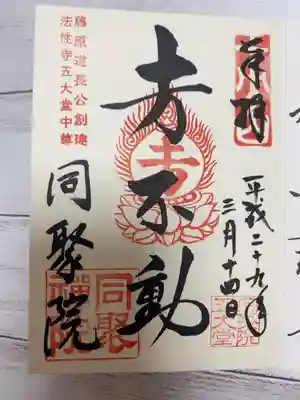 奉拝
平成二十九年
三月十四日
𡈽不動
藤原道長公創建
法性寺五大堂中尊
同聚院
同聚
禅院